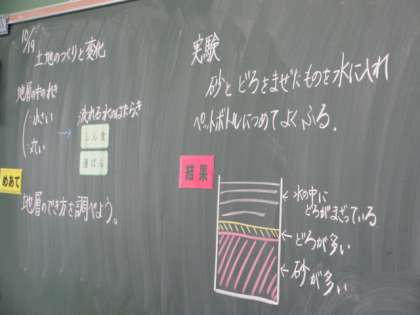 10/19
土地のつくりと変化
地層の中のれき
・小さい
・丸い
→ 流れる水のはたらき
しん食
運ぱん
めあて
地層のでき方を調べよう。
実験
砂とどろをまぜたものを水に入れ
ペットボトルにつめてよくふる.
結果
←水の中に
どろがまざっている
←どろが多い
←砂が多い